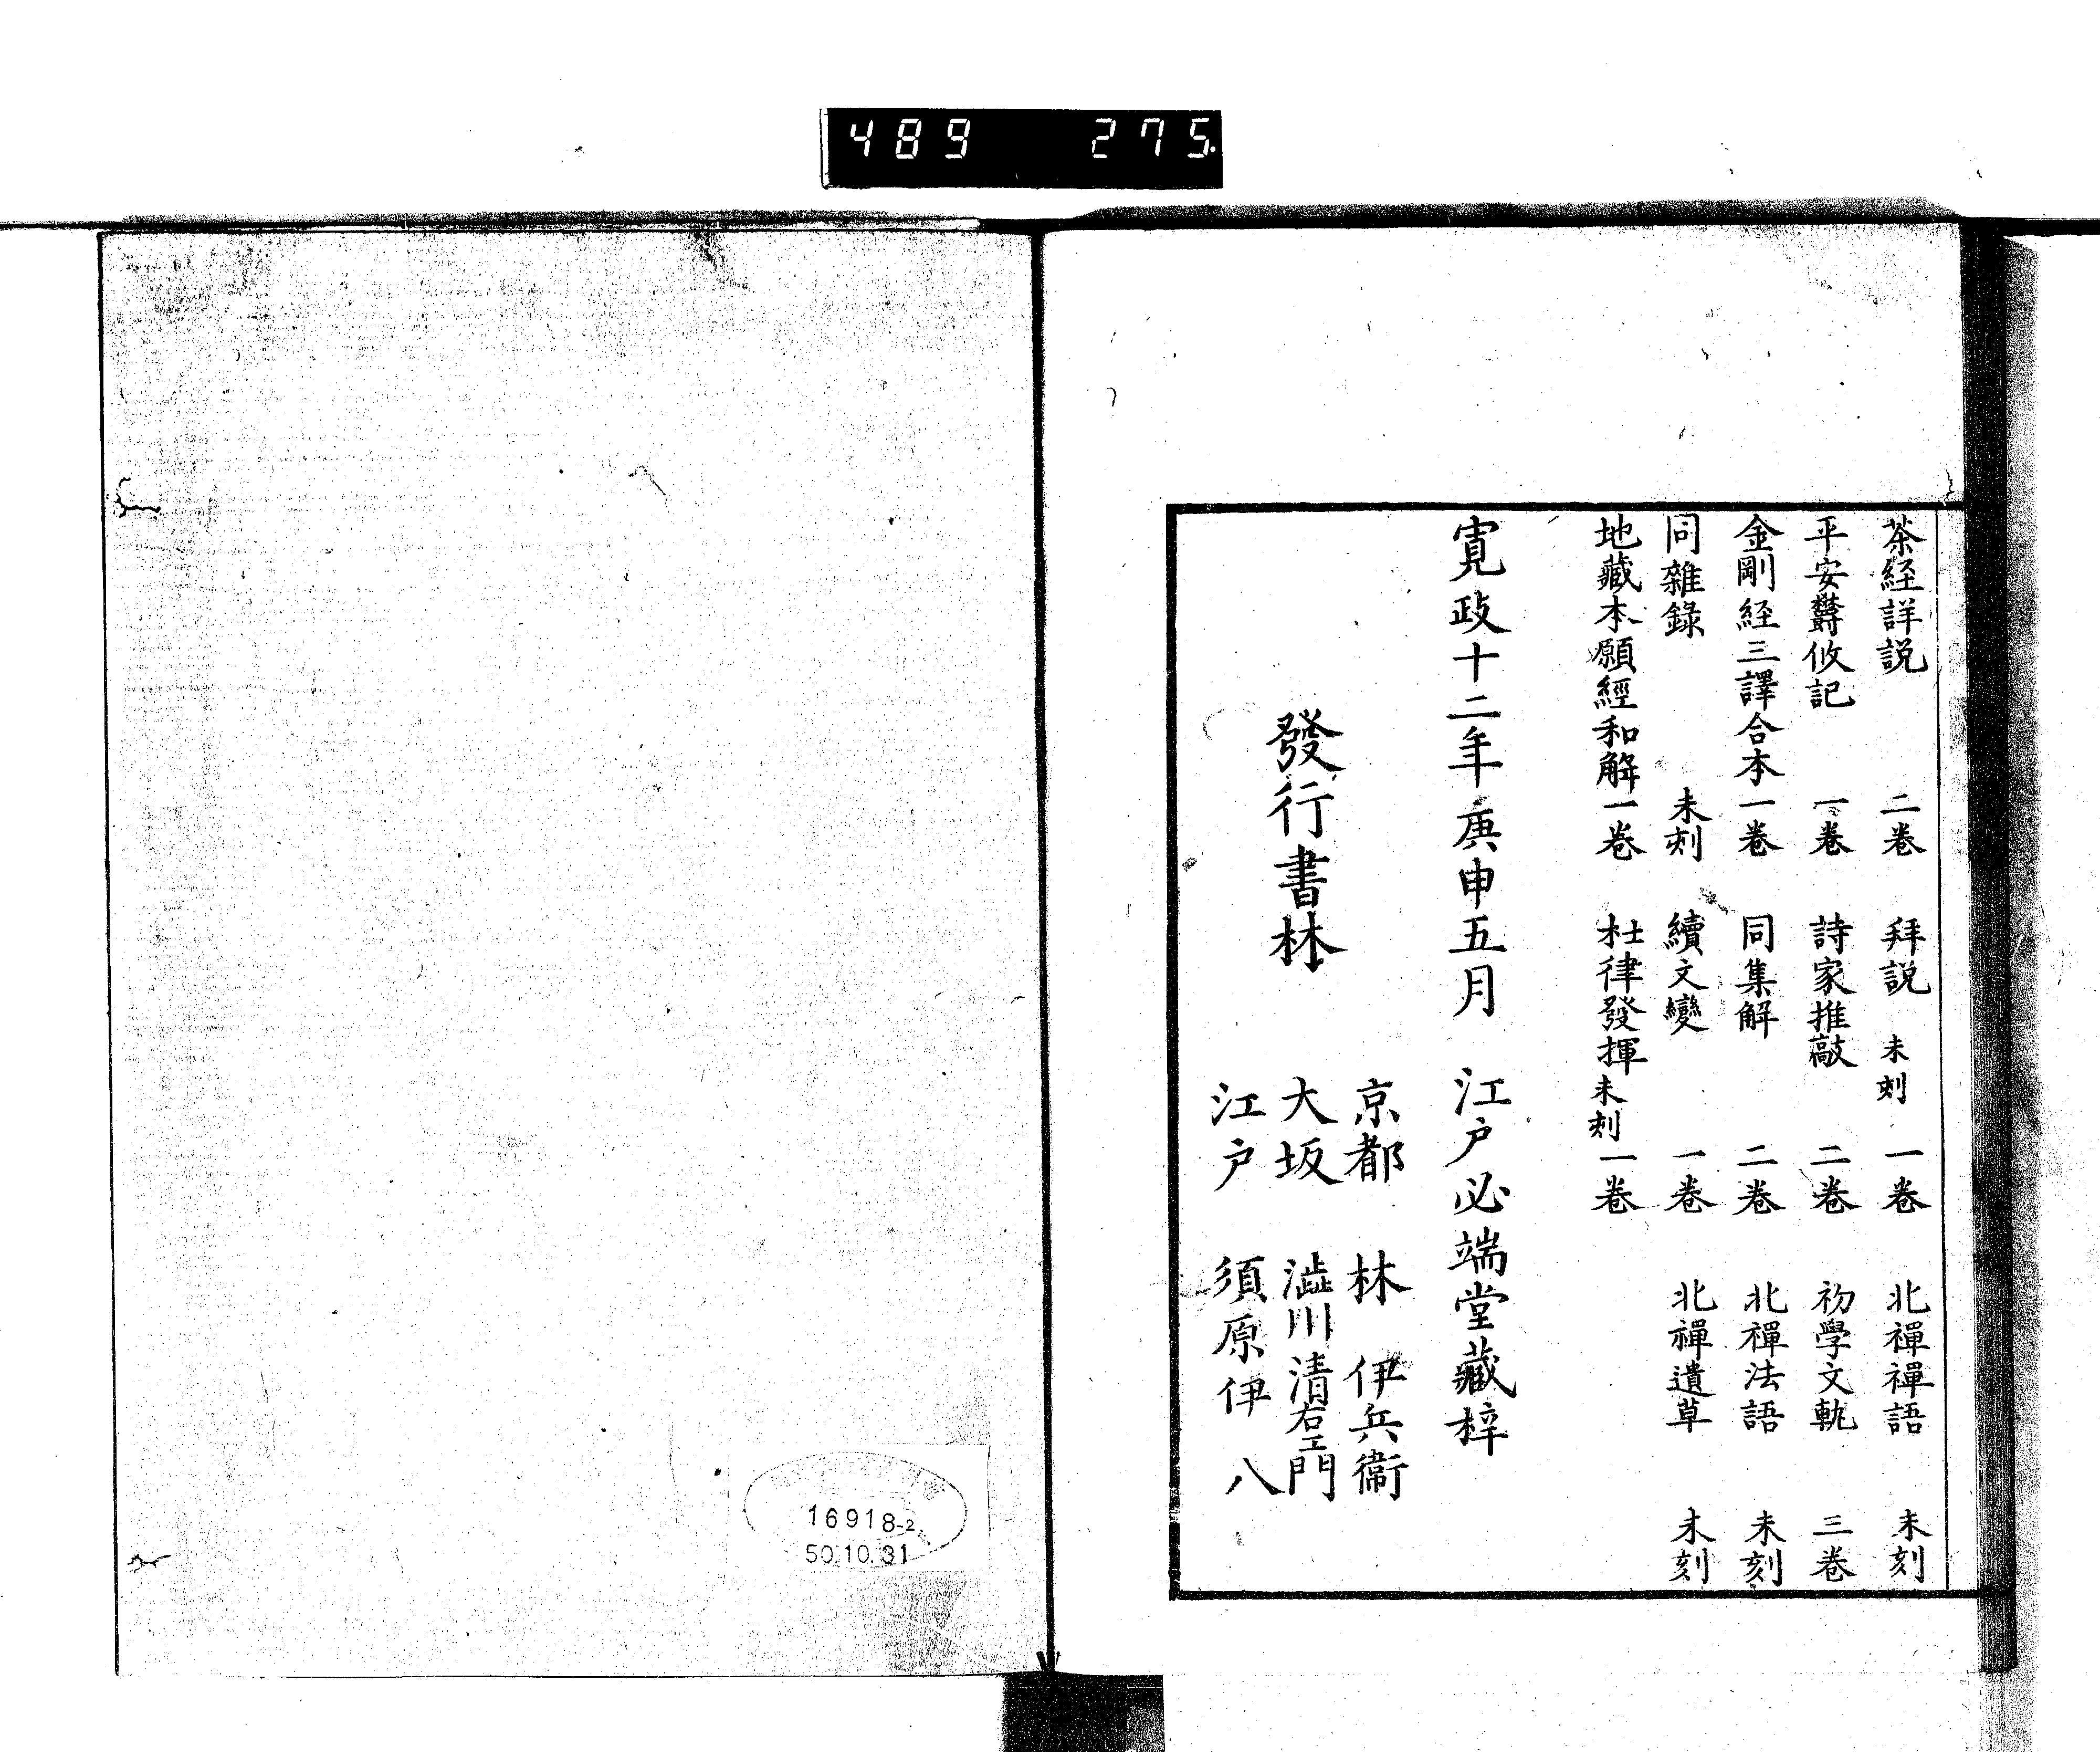 489 275
茶經詳説 二卷 拜説 未刻 一卷 北禪禪語 未刻
平安欝攸記 一卷 詩家推敲 二卷 初學文軌 三卷
金剛經三譯合本 一卷 同集解 二卷 北禪法語 未刻
同雜錄 未刻 續文變 一卷 北禪遺草 未刻
地藏本願經和解 一卷 杜律發揮 未刻 一卷
寛政十二年庚申五月 江戸必端堂藏梓
發行書林
京都 林 伊兵衞
大坂 澁川清右エ門
江戸 須原伊八
16918-2
50.10.31